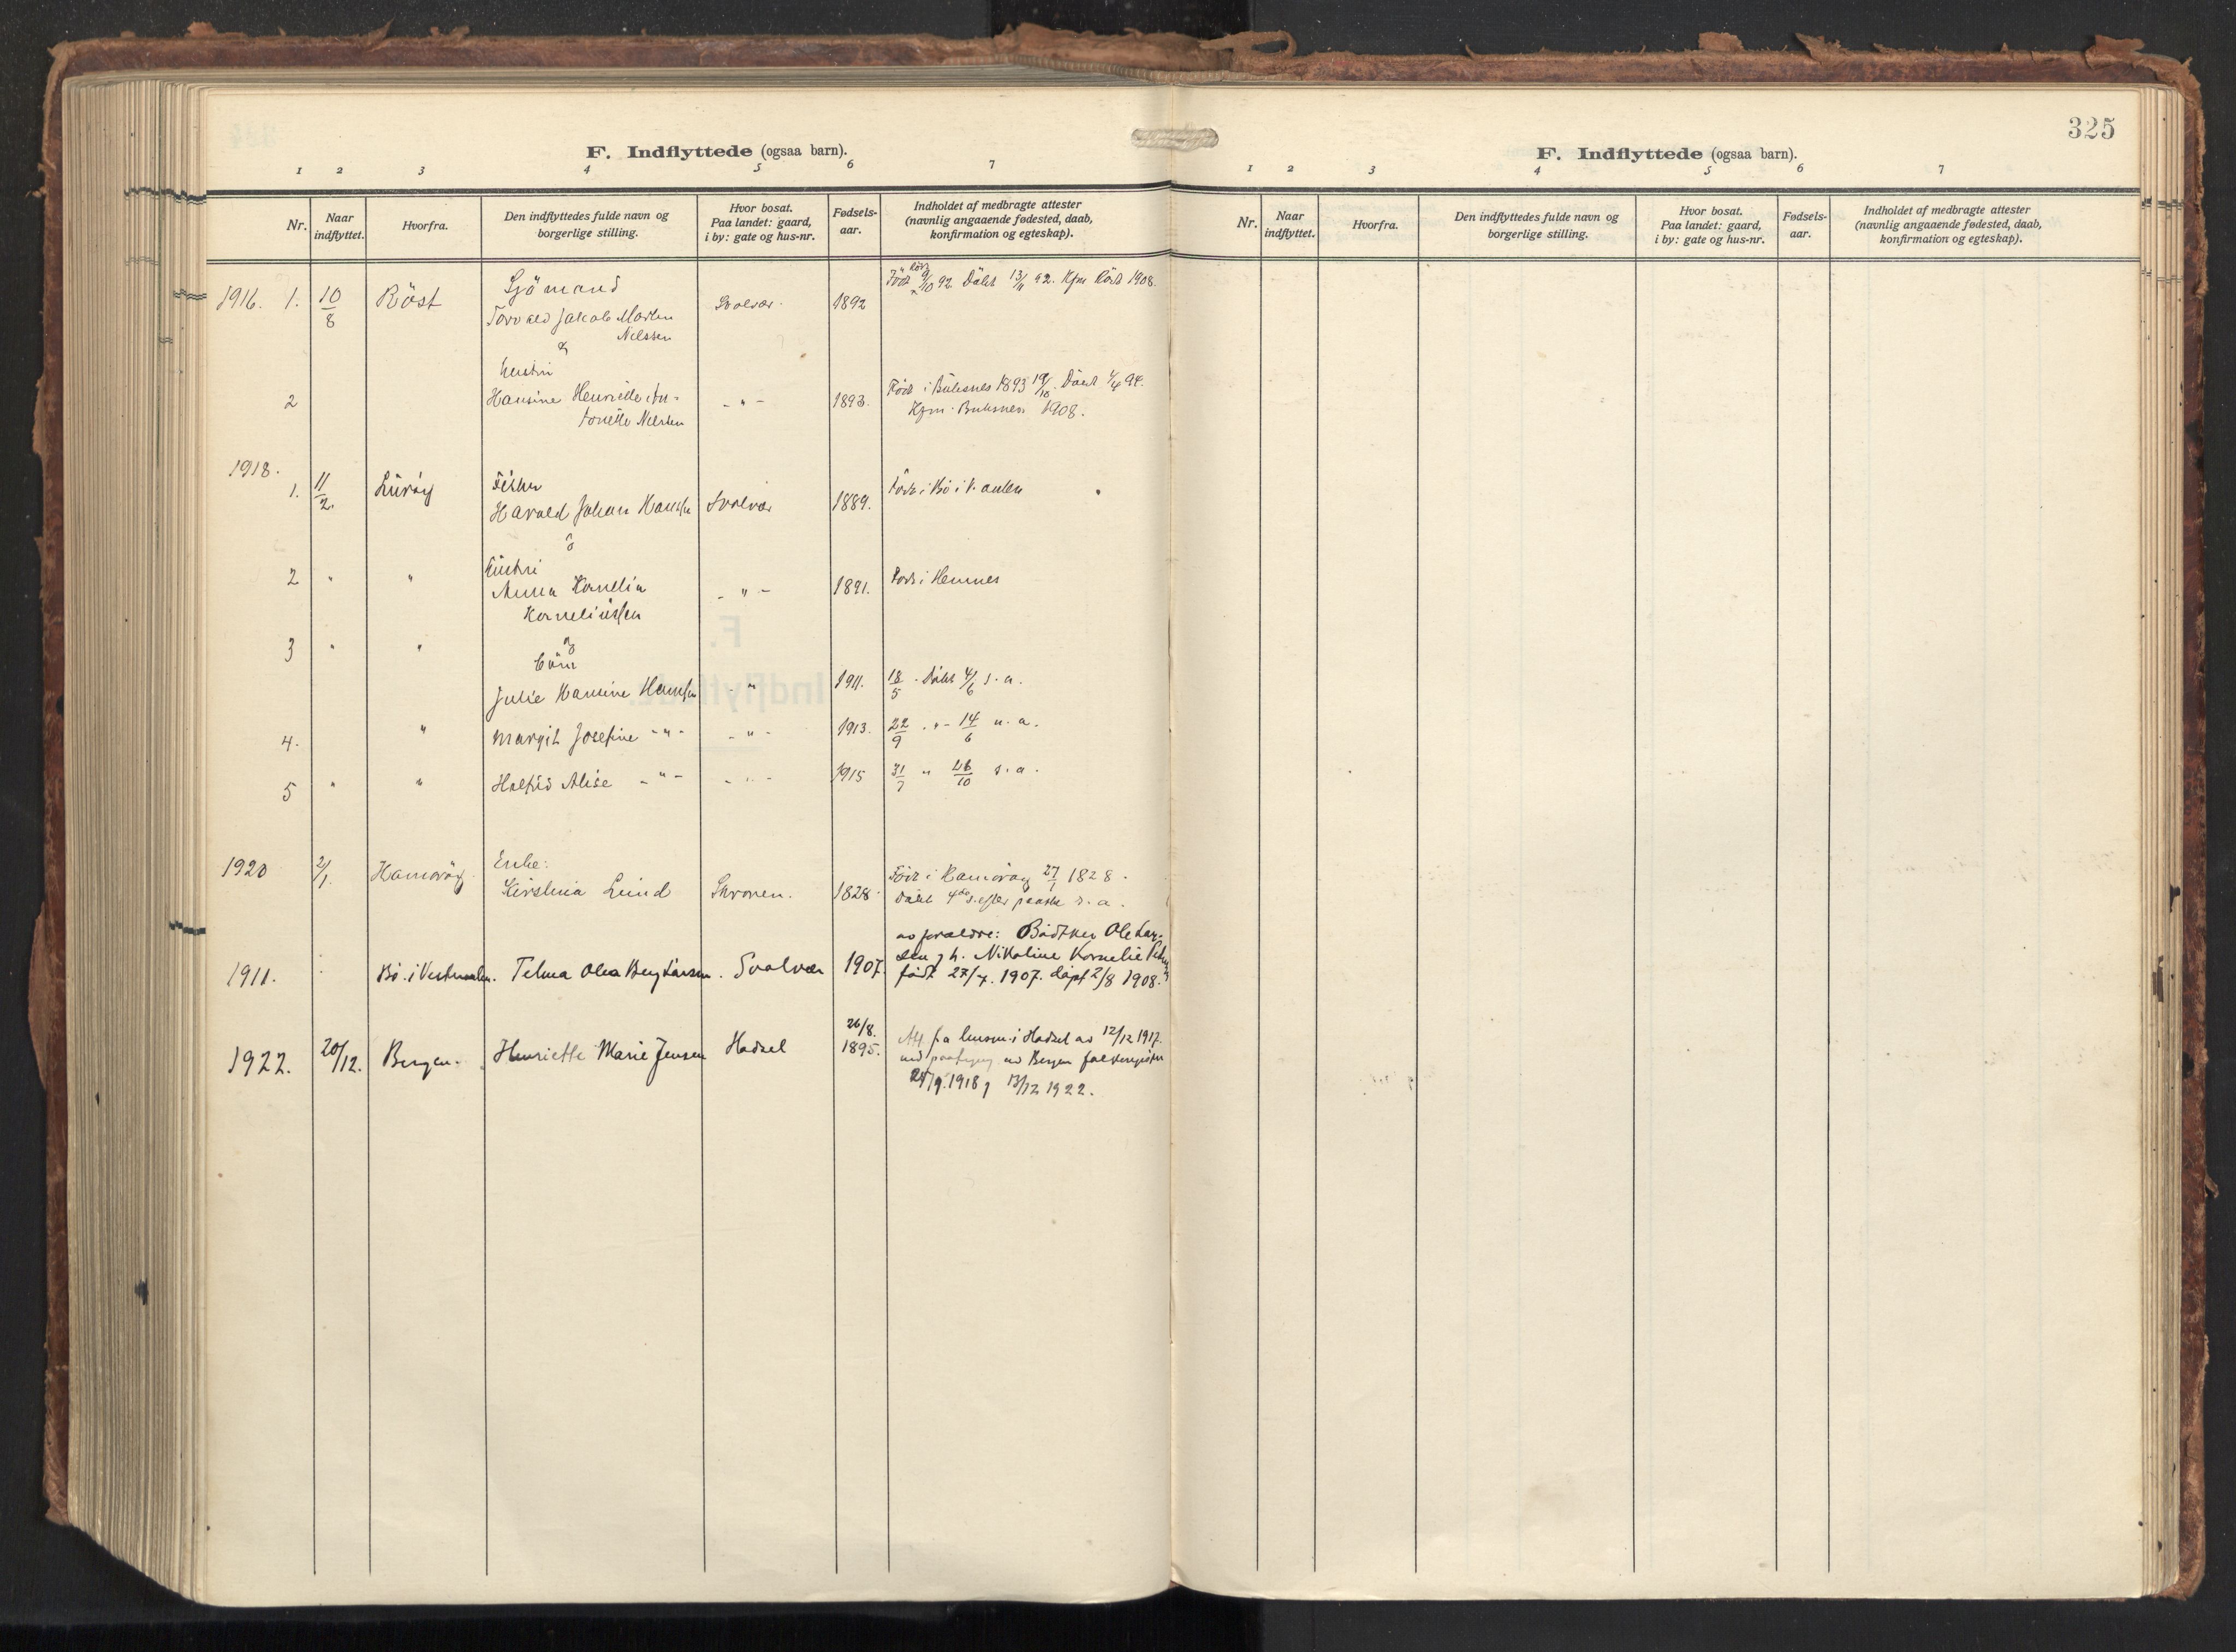 325
F. Indflyttede (ogsaa barn).
1 2 3 4 5 6 7
Nr. Naar indflyttet. Hvorfra. Den indflyttedes fulde navn og borgerlige stilling. Hvor bosat. Paa landet: gaard, i by: gate og hus-nr. Fødsels-aar. Indholdet af medbragte attester (navnlig angaaende fødested, daab, konfirmation og egteskap).
Sjömand
1916. 1. 10/8 Röst Torvald Jakob Martin Nilssen Svolvær 1892 Födt 9/10 92. Döbt 13/11 92. Kfm Röst 1908.
&
hustru
2 Hansine Henriette An-
tonette Nilssen - " - 1893. Född i Buksnes 1893 19/10. Döbt 1/4 94.
Kfm. Buksnes 1908.
1918.
1. 11/2. Luröy Fisker
Harald Johan Hansen Svolvær 1889. Född i Bö i V.aalen
&
Hustru
2 " " Anna Kornelia
Korneliussen - " - 1891. Född i Hemnes
3 " " og
börn
Julie Hansine Hansen - " 1911. 18/5 . Döbt 4/6 s.a.
4. " Margit Josefine - " - - " - 1913. 22/9 . " - 14/6 n.a.
5 " " Halfrid Alise - " - - " - 1915 31/7 " 26/10 s.a.
1920 2/1. Hamaröy Enke:
Kirstina Lund Skroven. 1828 Född i Hamaröy 27/1 1828.
Döbt 4de s. efter paaske s.a.
av forældre: Bödtker Ole Lar-
sen og h. Nikoline Kornelie
1911. Bö i Vesteraalen. Telma Olea Berg Larsen. Svolvær 1907. födt 27/7. 1907. döpt 2/8 1908.
1922. 20/12. Bergen. Henriette Marie Jensen Hadsel 26/8. 1895. Att fra lensm. i Hadsel av 12/12 1917.
med paategn av Bergen folkeregister
24/9. 1918 og 13/12 1922.
F. Indflyttede (ogsaa barn).
1 2 3 4 5 6 7
Nr. Naar indflyttet. Hvorfra. Den indflyttedes fulde navn og borgerlige stilling. Hvor bosat. Paa landet: gaard, i by: gate og hus-nr. Fødsels-aar. Indholdet af medbragte attester (navnlig angaaende fødested, daab, konfirmation og egteskap).